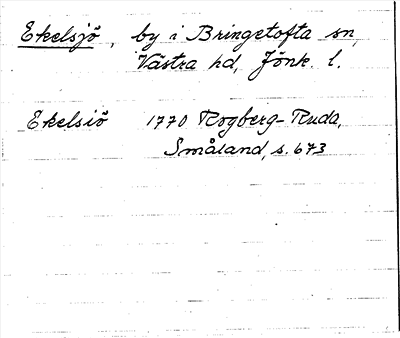 Ekelsjö, by i Bringetofta sn,
Västra hd, Jönk. l.
Ekelsiö 1770 Rogberg-Ruda,
Småland, s. 673